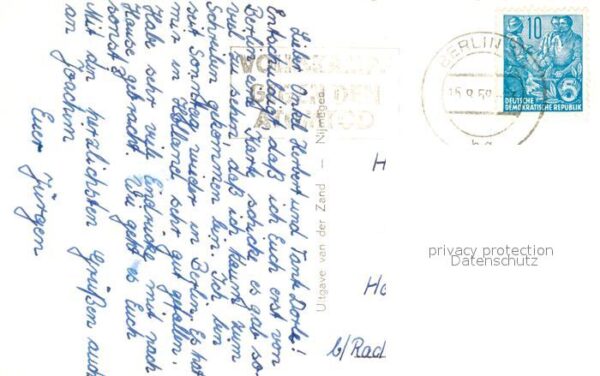 Lieber Onkel Herbert und Tante Dorle!
Entschuldigt daß ich Euch erst von
Berlin die Karte schicke es gab so-
viel zu sehen, daß ich kaum zum
Schreiben gekommen bin. Ich bin
seit Sonntag wieder in Berlin. Es hat
mir in Holland sehr gut gefallen,
Habe sehr viele Eindrücke mit nach
Hause gebracht. Wie geht es Euch
sonst?
Mit den herzlichsten Grüßen auch
an Joachim
Euer Jürgen
Uitgave van der Zand — Nijmegen
VOLKSKAMPF
GEGEN DEN
ATOMTOD
BERLIN
15.8.58
bg
10
DEUTSCHE
DEMOKRATISCHE REPUBLIK
5
H
Ho
b/Rad
privacy protection
Datenschutz